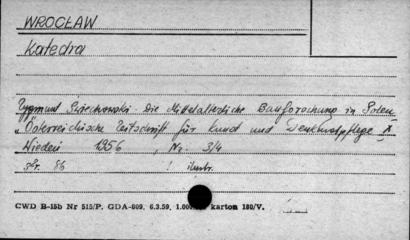 WROCŁAW
Katedra
Zygmunt Świechowski - Die Mittelalterliche Bauforschung in Polen
"Österreichische Zeitschrift für Kunst und Denkmalpflege X
Wieden 1956, Nr. 3/4
str. 86 ! ilustr.
CWD B-15b Nr 515/P. GDA-809. 6.3.59. 1.00 karton 180/V.